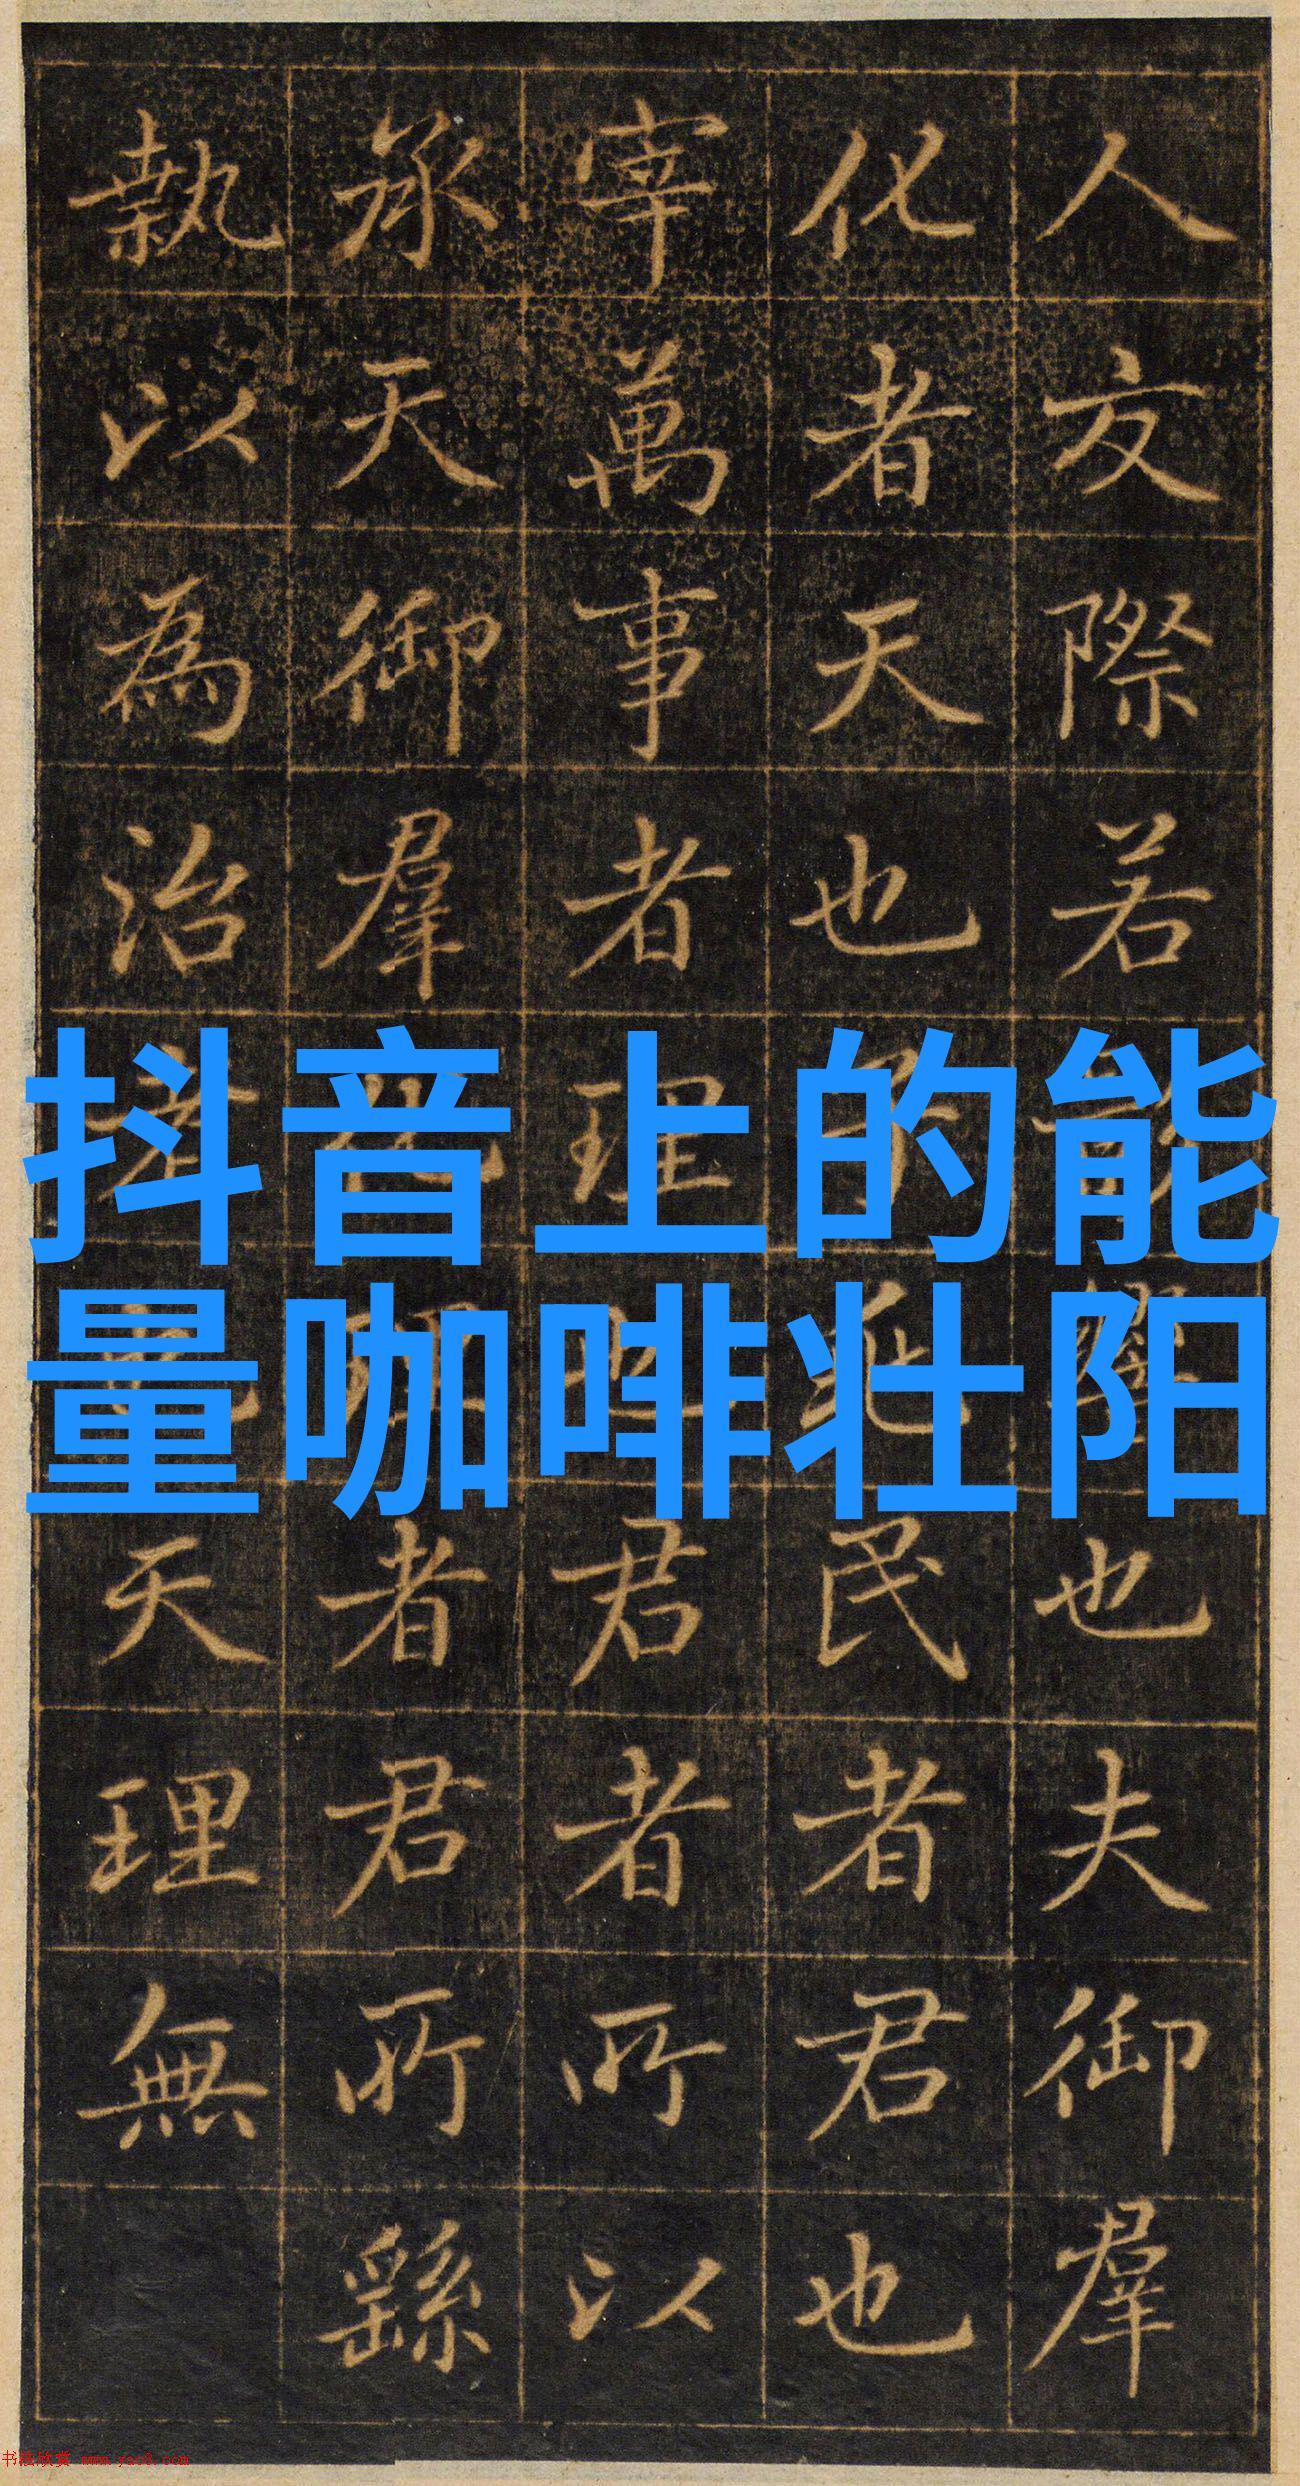 抖音上的能
量咖啡壮阳
人友際若也夫御羣
化者天也子兆民者君也
宰萬事者理也君者所以
承天御羣者君所繇
執以為治者也天理無
书法欣赏 www.yac8.com